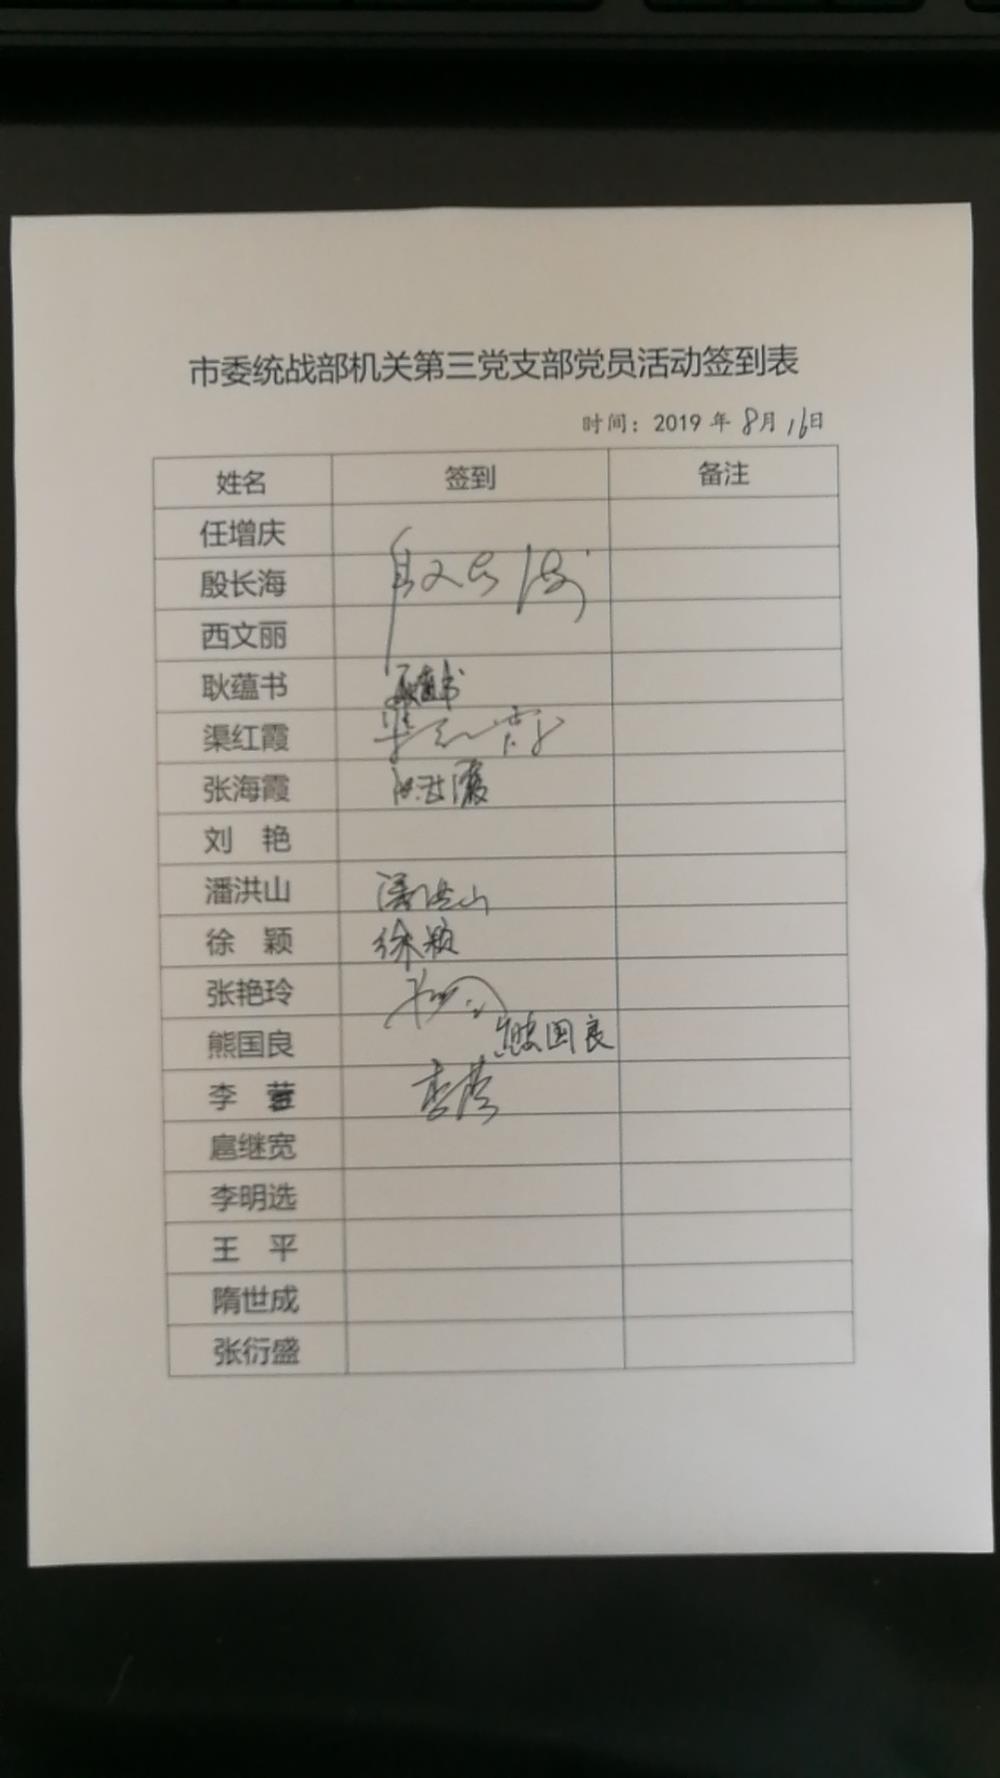 市委统战部机关第三党支部党员活动签到表
时间：2019 年 8月 16日
姓名 签到 备注
任增庆
殷长海 殷长海
西文丽
耿蕴书 耿蕴书
渠红霞 渠红霞
张海霞 张海霞
刘 艳
潘洪山 潘洪山
徐 颖 徐颖
张艳玲
熊国良 熊国良
李 萱
扈继宽
李明选
王 平
隋世成
张衍盛